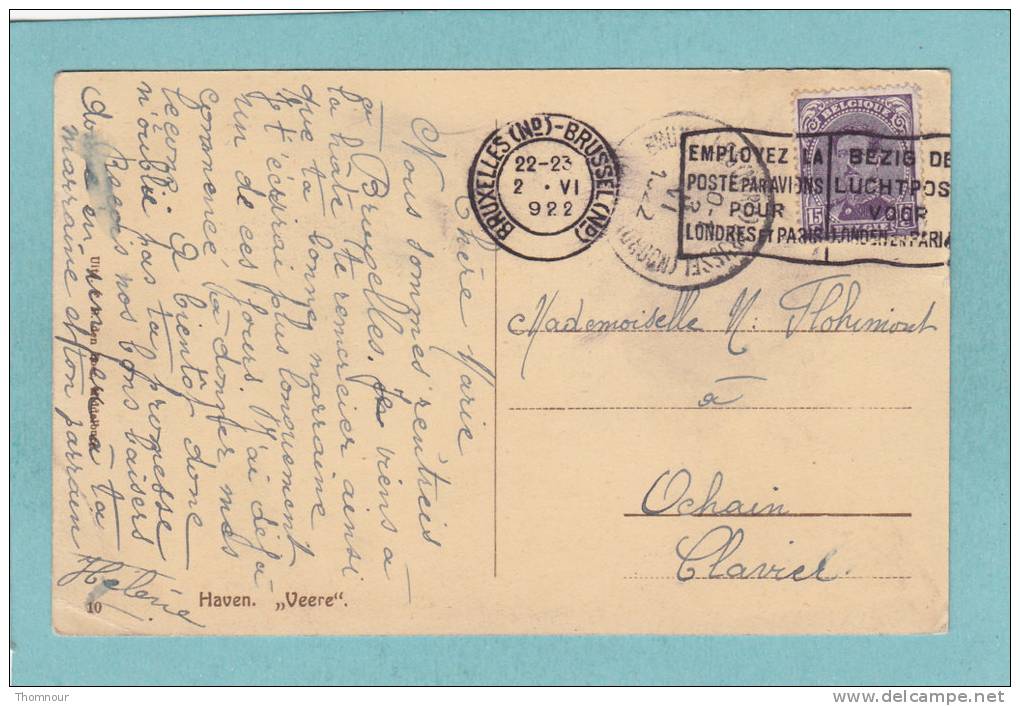 Chère Marie
Nous sommes rentrées
à Bruxelles. Je viens à
la hâte te remercier ainsi
que ta bonne marraine
Je t'écrirai plus longuement
un de ces jours. J'ai déjà
commencé à donner mes
leçons. A bientôt donc
n'oublie pas ta promesse
Reçois nos bons baisers
donne en à ta
marraine et ton parrain
Hélène
10
Haven. „Veere".
BRUXELLES (Nᴅ) - BRUSSEL (Nᴅ)
22-23
2 · VI
922
EMPLOYEZ LA
POSTE PAR AVIONS
POUR
LONDRES ET PARIS
BEZIG DE
LUCHTPOS
VOOR
LONDEN EN PARI
BELGIQUE
15
Mademoiselle M. Flohimont
à
Ochain
Clavier
Thomnour
http://www.delcampe.net